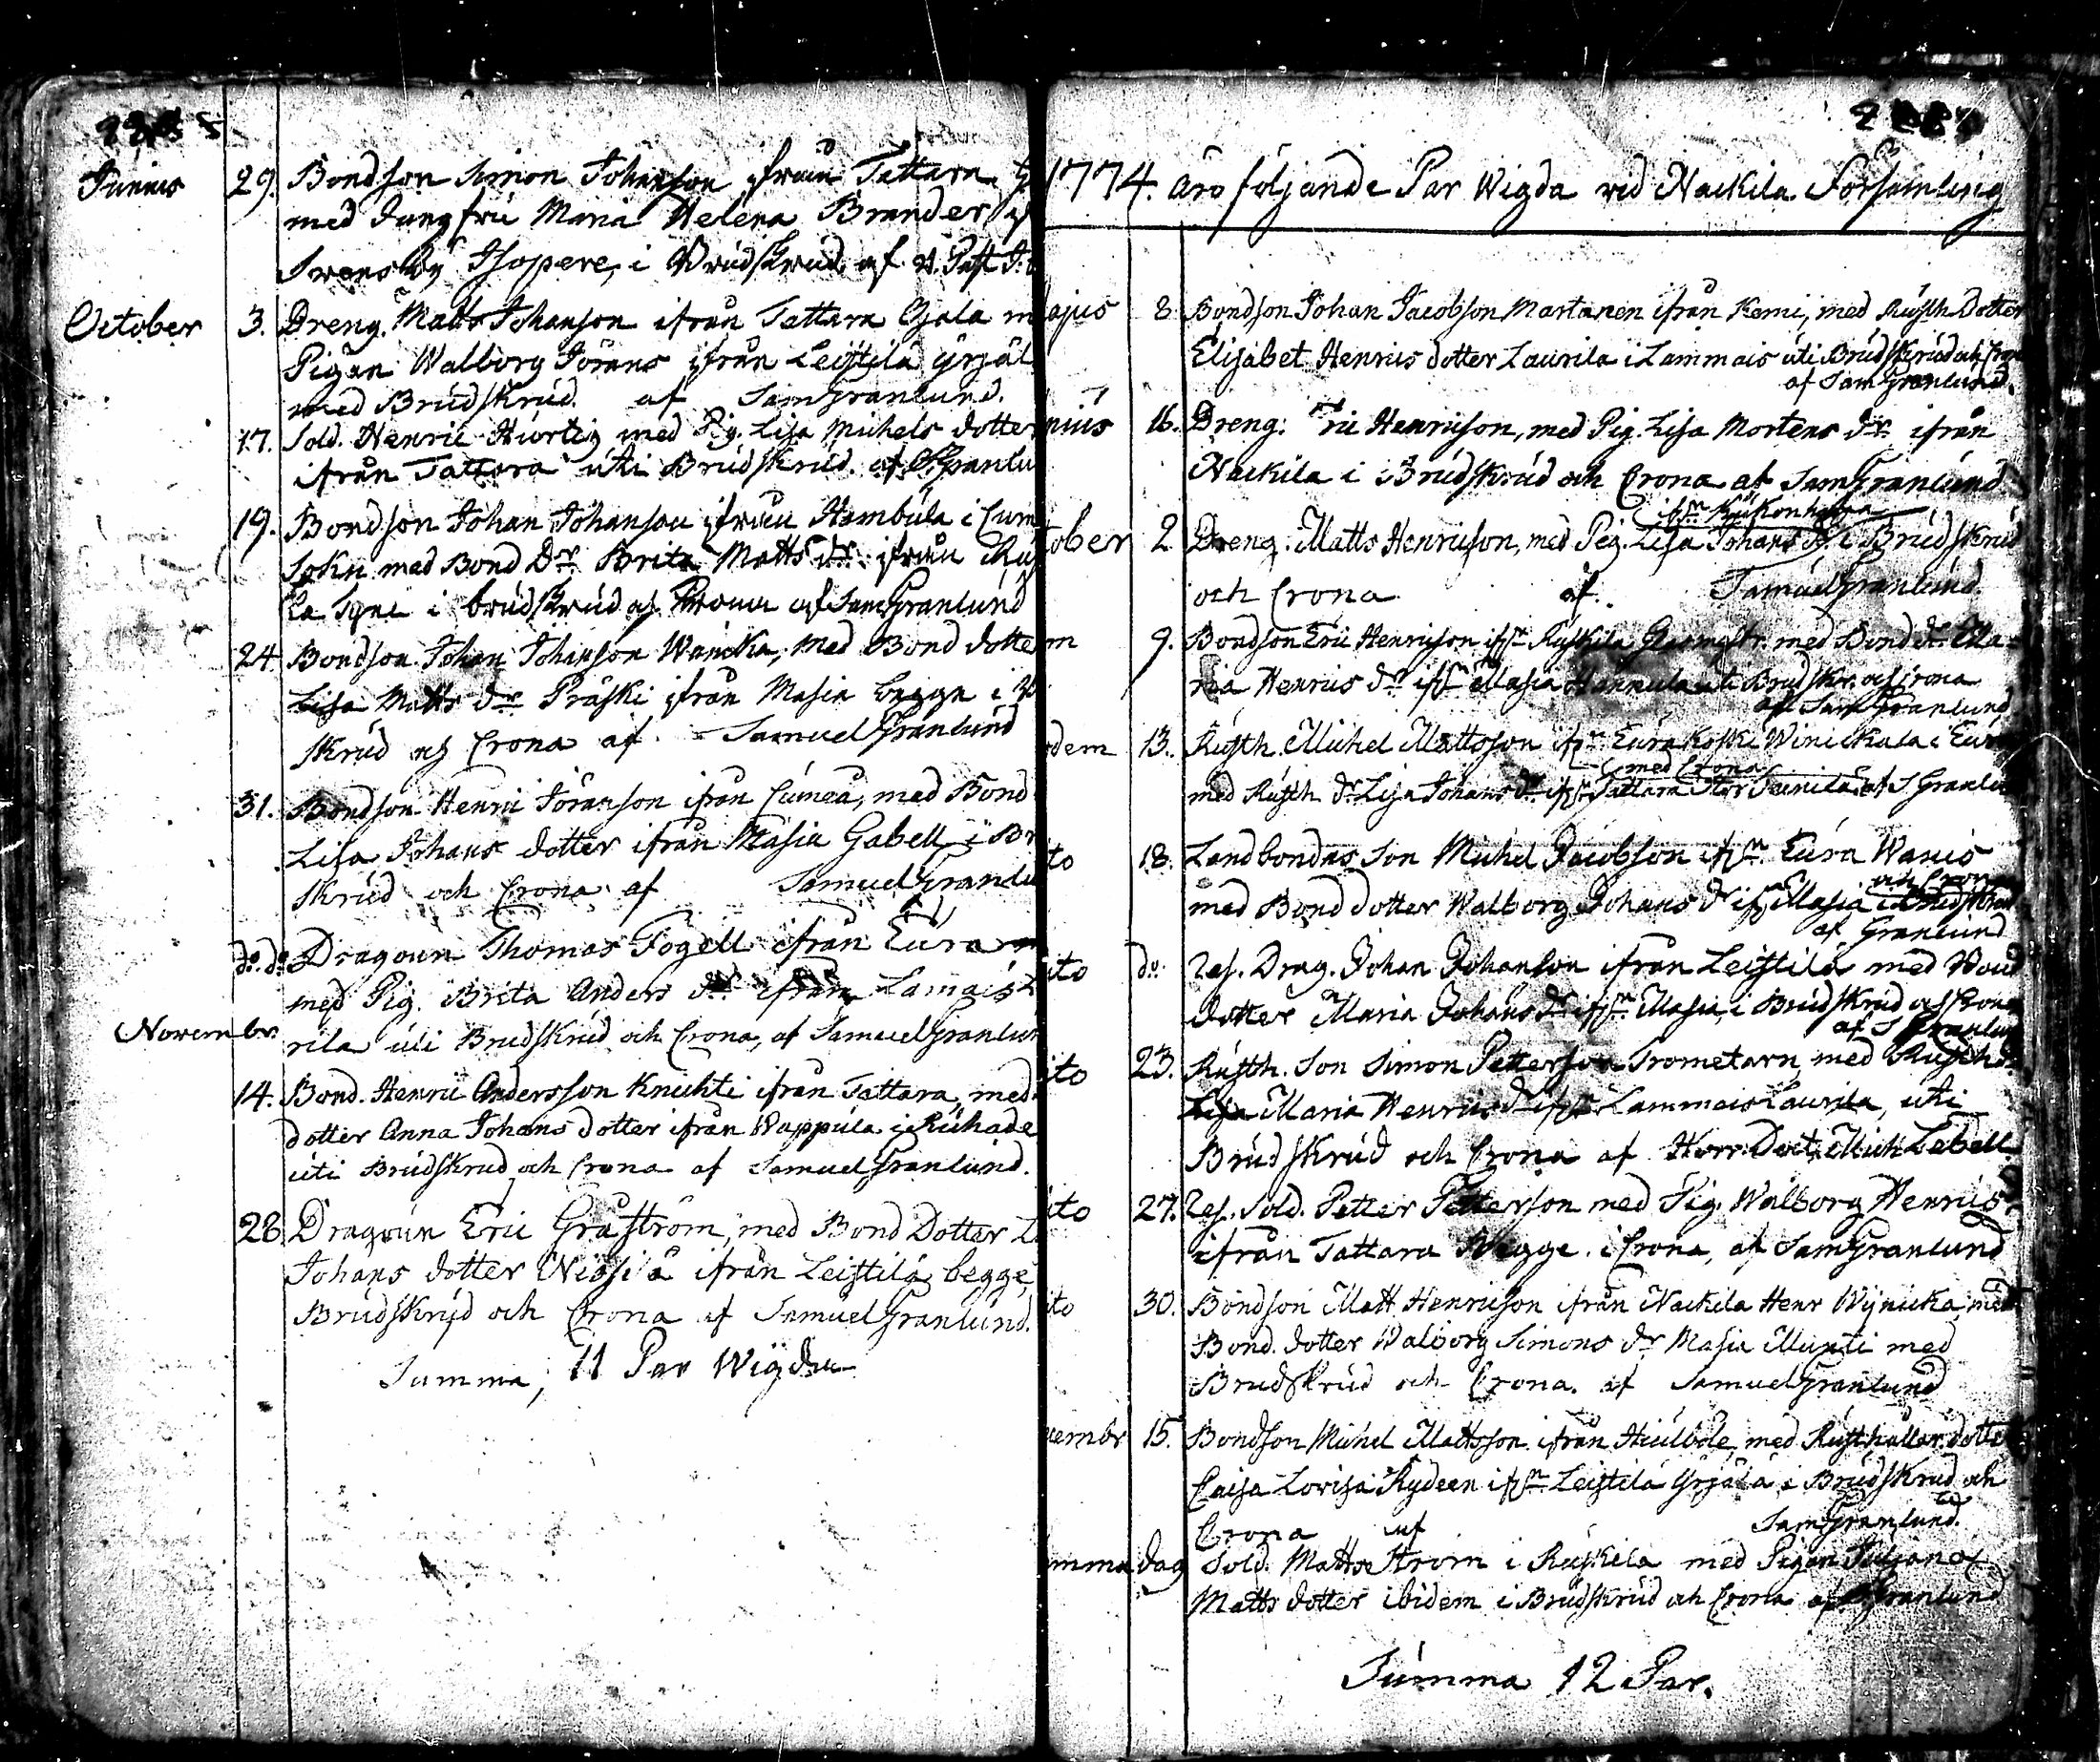 Junius 29. Bondson Simon Johanson ifrån Tattara
med Jungfru Maria Helena Brander
Swensby Isopere, i Brudskrud af
October 3. Dreng. Matts Johanson ifrån Tattara Ojala
Pigan Walborg Jörans ifrån Leistilä Yrjäl
med Brudskrud af SamGranlund.
17. Sold. Henric Hurtig med Pig. Lisa Michels dotter
ifrån Tattara uti Brudskrud af SGranlu
19. Bondson Johan Johanson ifrån Hambula i Cum
Sokn med Bond Dr Brita Matts dr ifrån
i brudskrud och Crona af SamGranlund
24. Bondson Johan Johanson Wancka, med Bond dotte
Lisa Matts dr Präski ifrån Masia begge i
Skrud och Crona af SamuelGranlund
31. Bondson Henric Jöranson ifrån Cumeå, med Bond
Lisa Johans dotter ifrån Masia Gabell i Br
Skrud och Crona af SamuelGranlu
do. do Dragoun Thomas Fogell ifrån Eura
med Pig. Brita Anders dr ifrån Lamais
Novembr. rila uti Brudskrud och Crona, af SamuelGranlun
14. Bond. Henric Andersson Knichti ifrån Tattara, med
dotter Anna Johans dotter ifrån Wappula i
uti Brudskrud och Crona af SamuelGranlund.
28. Dragoun Eric Gråström, med Bond Dotter
Johans dotter ifrån Leistilä begge,
Brudskryd och Crona af SamuelGranlund.
Summa, 11 Par Wigda
1774. äro följande Par Wigda wid Nackila Församling
ajus 8. Bondson Johan Jacobson Martanen ifrån Kemi, med Rusth. Dotter
Elisabet Henrics dotter Laurila i Lammais uti Brudskrud och
af SamGranlund.
nius 16. Dreng. ric Henricson, med Pig. Lisa Mortens dr ifrån
Nackila i Brudskrud och Crona af SamGranlund
tober 2 Dreng. Matts Henricson, med Pig. Lisa Johans dr i Brudskrud
och Crona af SamuelGranlund.
m 9. Bondson Eric Henricson ifrn Ruskila med Bond dr Ma=
ria Henrics dr ifrn Masia Hannula uti Brudskr. och Crona
af SamGranlund
dem 13. Rusth. Michel Mattsson ifrn Eurakoski Winickala i Eura
med Crona
med Rusth. dr Lisa Johans dr ifrn Tattara Stor Seunila af SGranlu
to 18. Landbondas Son Michel Jacobson ifrn Eura Wanis
och Crona
med Bond dotter Walborg Johans dr ifrn Masia i Brudskrud
af Granlund
ito do. Res. Drag. Johan Johanson ifrån Leistilä med Bond
dotter Maria Johans dr ifrn Masia, i Brudskrud och Crona
af SGranlun
ito 23. Rusth. Son Simon Petterson Trometarn med Rusth d
Lisa Maria Henrics dr ifrn Lammais Laurila, uti
Brudskrud och Crona af Herr Doct. Mich Lebell
ito 27. Res. Sold. Petter Petterson med Pig. Walborg Henrics
ifrån Tattara Begge i Crona, af SamGranlund
ito 30. Bondson Matt Henricson ifrån Nackila Henr Wynicka, med
Bond. dotter Walborg Simons dr Masia Munti med
Brudskrud och Crona. af SamuelGranlund
cembr 15. Bondson Michel Mattsson ifrån Hiulböle, med Rusthållar dotte
Caisa Lovisa Rydeen ifrn Leistilä Yrjälä i Brudskrud och
Crona af SamGranlund.
mma dag Sold. Matts Ström i Ruskila med Pigan Juliana
Matts dotter ibidem i Brudskrud och Crona af Granlund
Summa 12 Par.